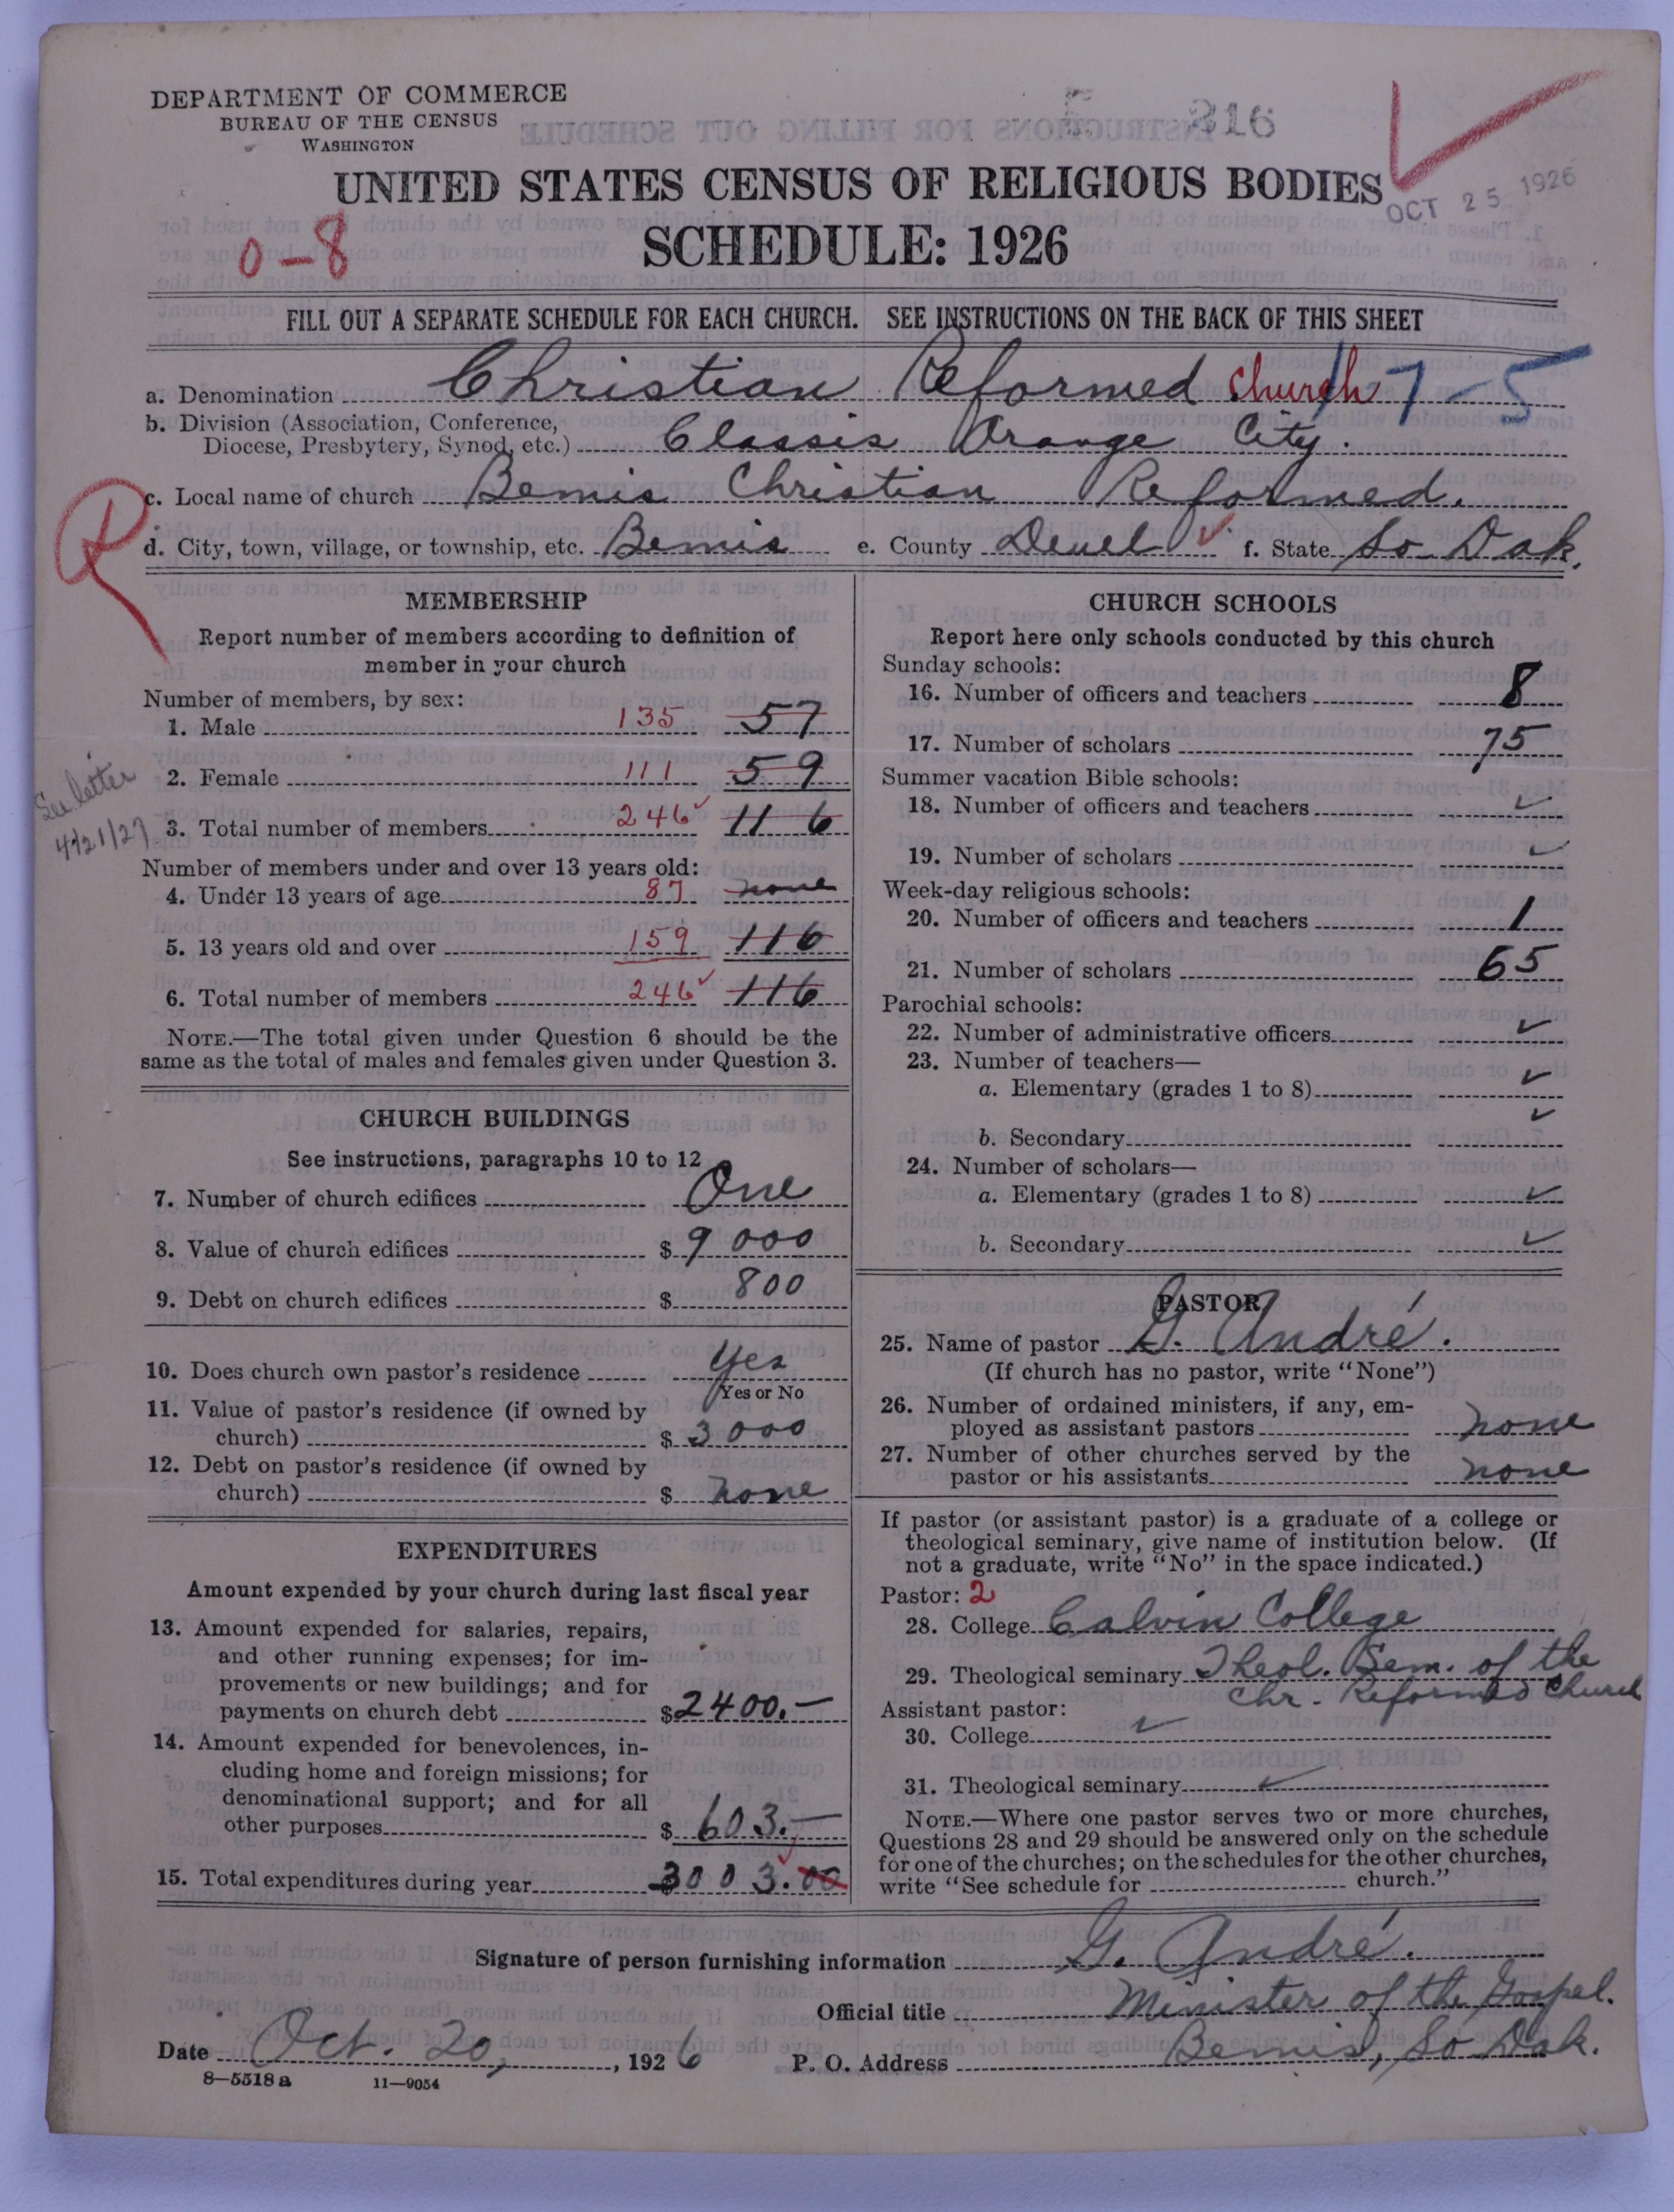 DEPARTMENT OF COMMERCE
BUREAU OF THE CENSUS
WASHINGTON
316
UNITED STATES CENSUS OF RELIGIOUS BODIES
OCT 25 1926
SCHEDULE: 1926
0-8
FILL OUT A SEPARATE SCHEDULE FOR EACH CHURCH. SEE INSTRUCTIONS ON THE BACK OF THIS SHEET
a. Denomination Christian Reformed Church 17-5
b. Division (Association, Conference,
Diocese, Presbytery, Synod, etc.) Classis Orange City.
c. Local name of church Bemis Christian Reformed.
d. City, town, village, or township, etc. Bemis e. County Deuel f. State So Dak.
R
MEMBERSHIP
Report number of members according to definition of
member in your church
Number of members, by sex:
1. Male 135 57
2. Female 111 59
See letter
4/21/27
3. Total number of members 246 116
Number of members under and over 13 years old:
4. Under 13 years of age 87 none
5. 13 years old and over 159 116
6. Total number of members 246 116
NOTE.—The total given under Question 6 should be the
same as the total of males and females given under Question 3.
CHURCH BUILDINGS
See instructions, paragraphs 10 to 12
7. Number of church edifices One
8. Value of church edifices $ 9000
9. Debt on church edifices $ 800
10. Does church own pastor's residence Yes
Yes or No
11. Value of pastor's residence (if owned by
church) $ 3000
12. Debt on pastor's residence (if owned by
church) $ none
EXPENDITURES
Amount expended by your church during last fiscal year
13. Amount expended for salaries, repairs,
and other running expenses; for im-
provements or new buildings; and for
payments on church debt $ 2400.—
14. Amount expended for benevolences, in-
cluding home and foreign missions; for
denominational support; and for all
other purposes $ 603.—
15. Total expenditures during year $ 3003.00
CHURCH SCHOOLS
Report here only schools conducted by this church
Sunday schools:
16. Number of officers and teachers 8
17. Number of scholars 75
Summer vacation Bible schools:
18. Number of officers and teachers ✓
19. Number of scholars ✓
Week-day religious schools:
20. Number of officers and teachers 1
21. Number of scholars 65
Parochial schools:
22. Number of administrative officers ✓
23. Number of teachers—
a. Elementary (grades 1 to 8) ✓
b. Secondary ✓
24. Number of scholars—
a. Elementary (grades 1 to 8) ✓
b. Secondary ✓
PASTOR
25. Name of pastor G. André.
(If church has no pastor, write "None")
26. Number of ordained ministers, if any, em-
ployed as assistant pastors none
27. Number of other churches served by the
pastor or his assistants none
If pastor (or assistant pastor) is a graduate of a college or
theological seminary, give name of institution below. (If
not a graduate, write "No" in the space indicated.)
Pastor: 2
28. College Calvin College
29. Theological seminary Theol. Sem. of the
Chr. Reformed Church
Assistant pastor:
30. College ✓
31. Theological seminary ✓
NOTE.—Where one pastor serves two or more churches,
Questions 28 and 29 should be answered only on the schedule
for one of the churches; on the schedules for the other churches,
write "See schedule for church."
Signature of person furnishing information G. André.
Official title Minister of the Gospel.
Date Oct. 20, 1926 P. O. Address Bemis, So Dak.
8—5518 a 11—9054